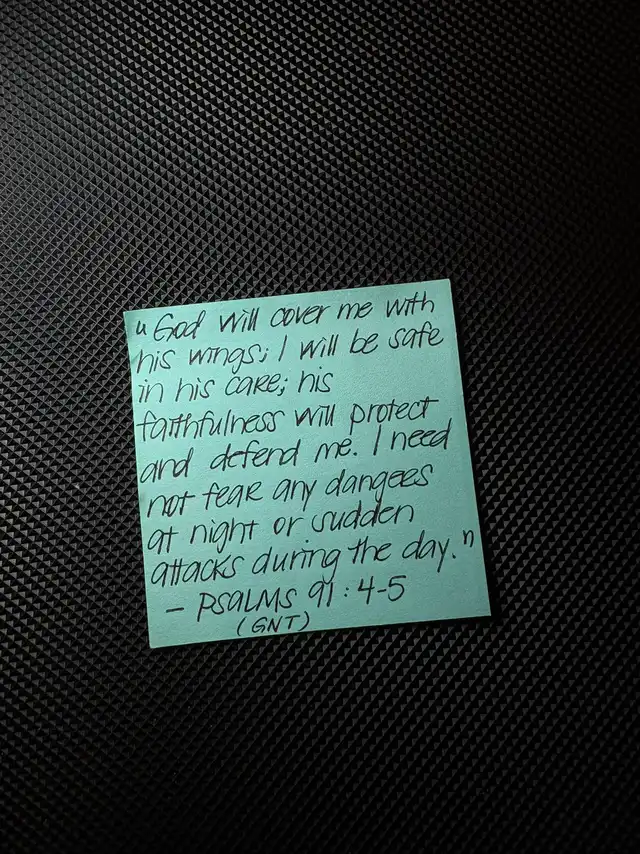 "God will cover me with
his wings; I will be safe
in his care; his
faithfulness will protect
and defend me. I need
not fear any dangers
at night or sudden
attacks during the day."
- PSALMS 91:4-5
(GNT)